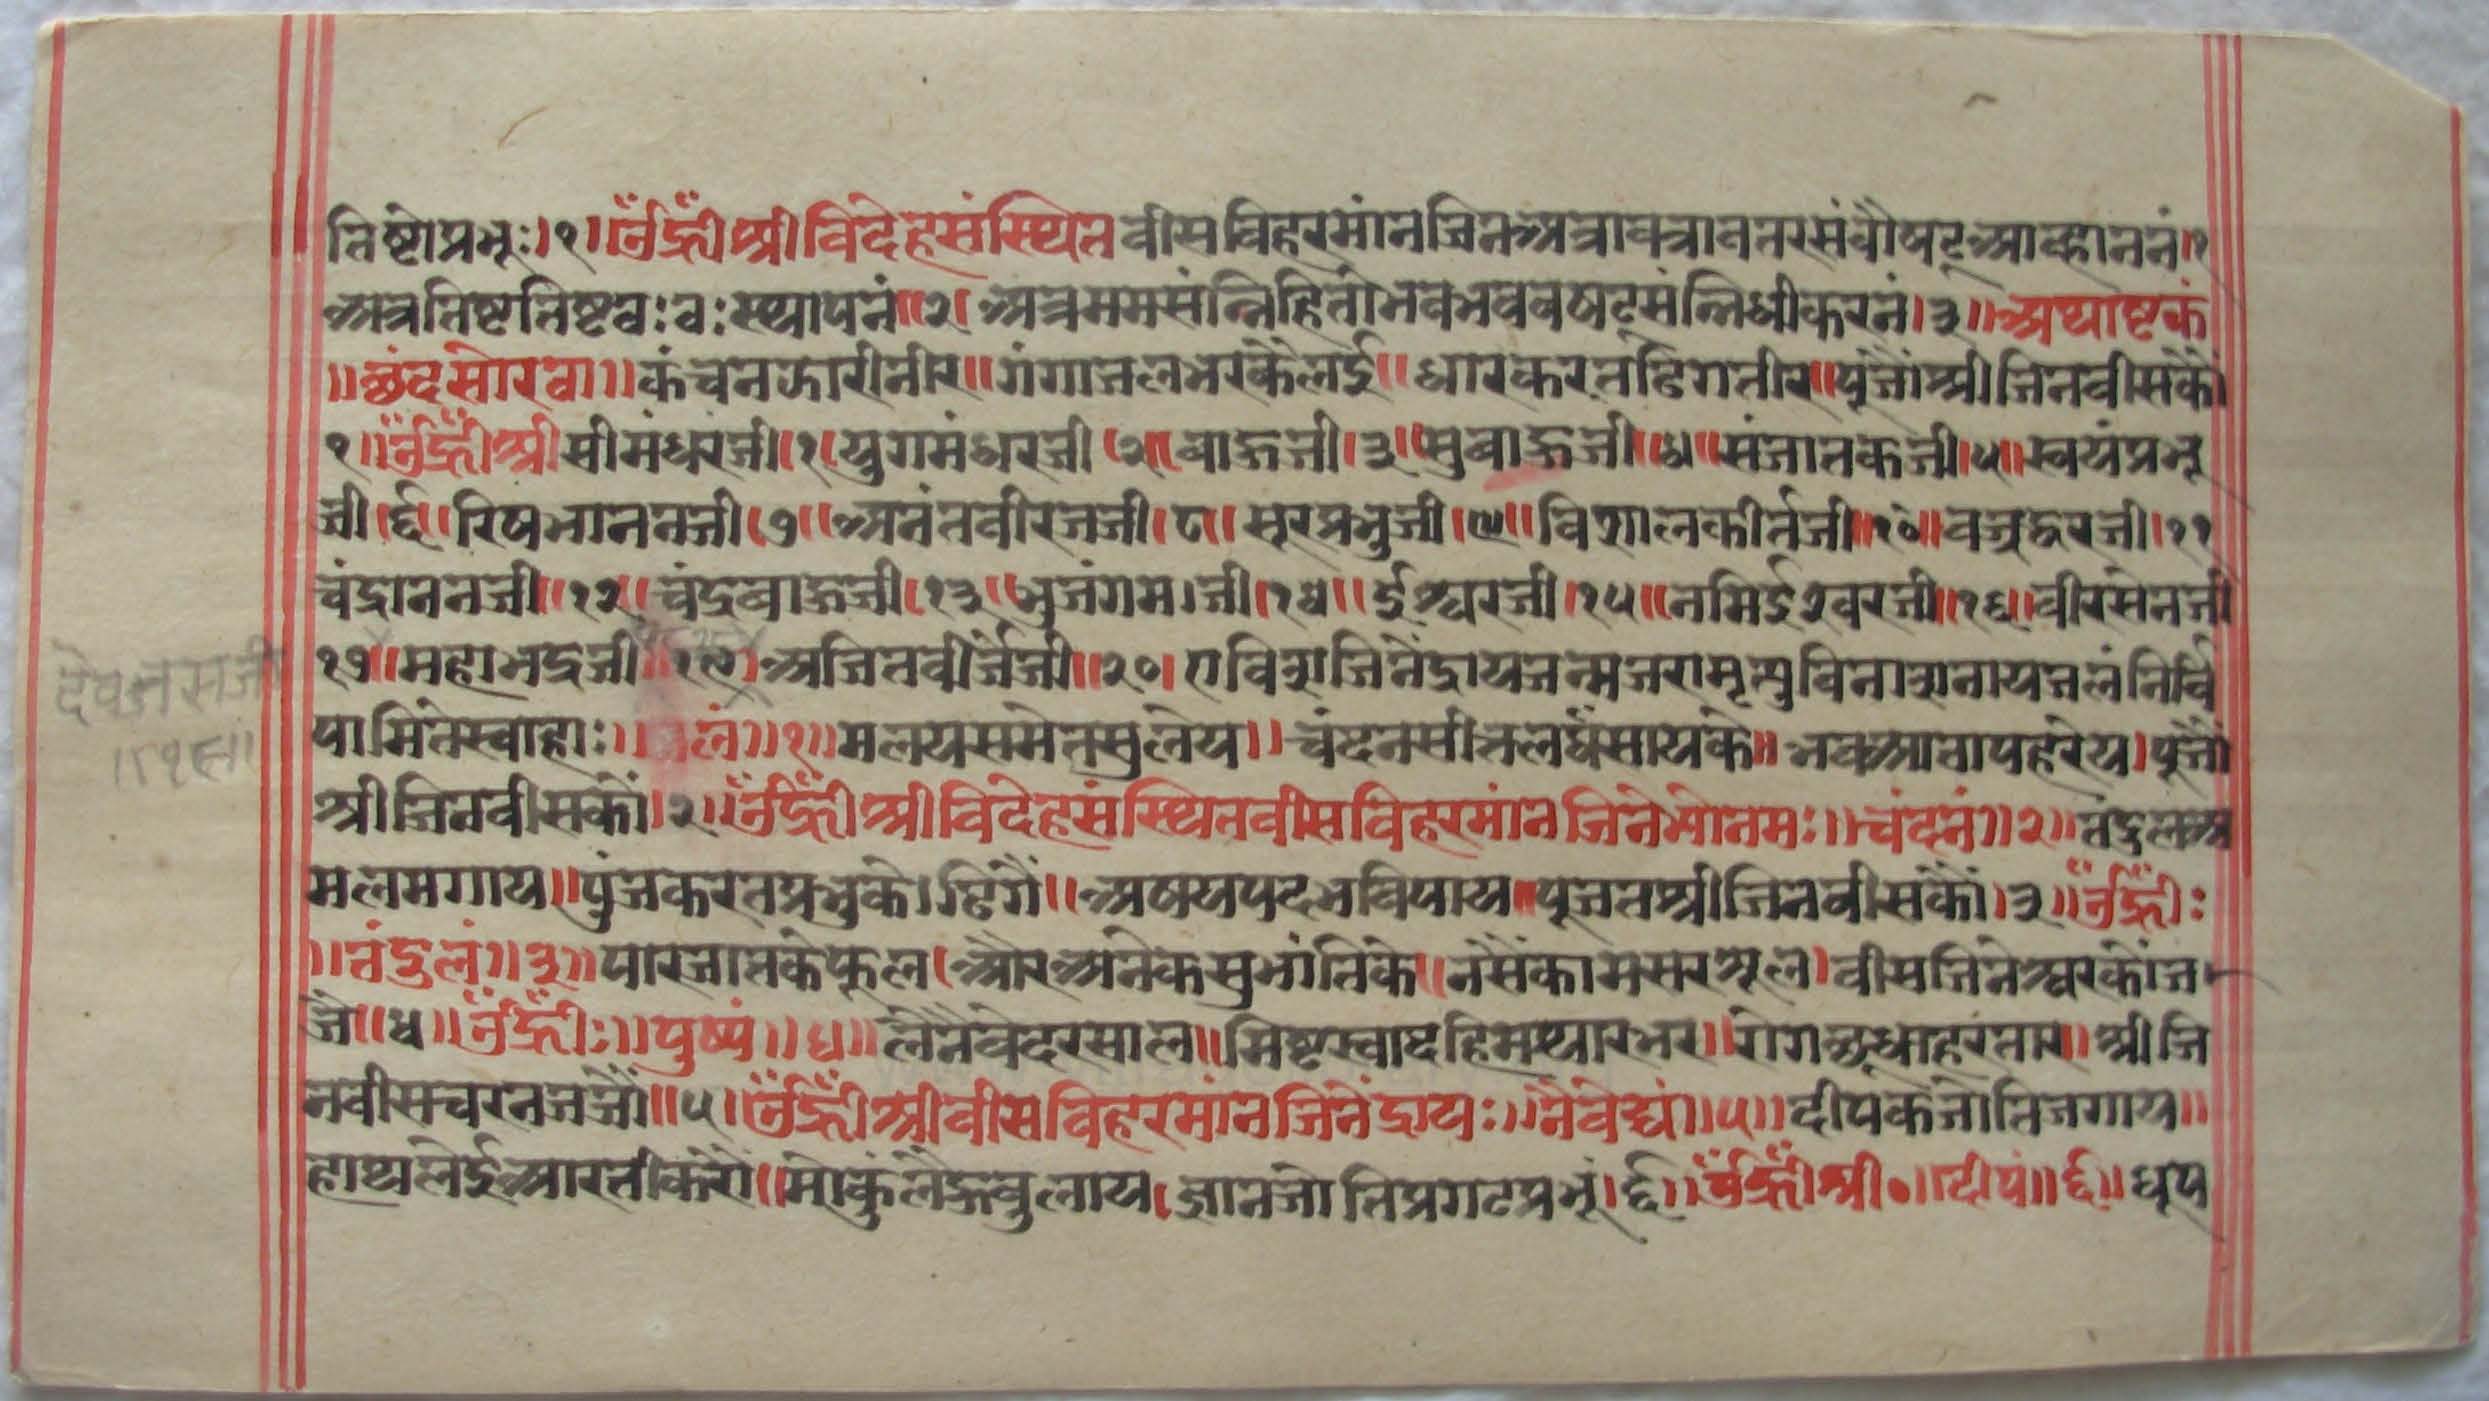 तिष्टोप्रभूः।१।ॐह्रीं श्रीविदेहसंस्थित वीसविहरमांनजिनअत्रावत्रावतरसंवौषट्आव्हाननं॥१
अत्रतिष्टतिष्टवःवःस्थापनं॥२।अत्रममसंन्निहितोभवभववषट्संन्निधीकरनं।३॥अथाष्टकं
॥छंदसोरठा॥कंचनझारीनीर॥गंगाजलभरकैलई॥धारकरतढिगतीर॥पूंजौंश्रीजिनवीसकौं
१॥ॐह्रींश्रीसीमंधरजी।१।युगमंधरजी।२॥बाऊजी।३॥सुबाऊजी॥४॥संजातकजी।५॥स्वयंप्रभू
जी।६॥रिषभाननजी।७॥अनंतवीरजजी।८॥सूरप्रभुजी।९॥विशालकीर्तजी॥१०॥वज्रद्धरजी।११
चंद्राननजी॥१२॥चंद्रबाऊजी।१३॥भुजंगमजी।१४॥ईश्वरजी।१५॥नमिईश्वरजी॥१६॥वीरसेनजी
१७॥महाभद्रजी॥१९।अजितवीर्जजी॥२०।एविशजिनेंद्रायजन्मजरामृत्युविनाशनायजलंनिर्वि
पामितेस्वाहाः॥जलं॥१॥मलयसमेतसुलेय॥चंदनसीतलघंसायके॥भवआतापहरेय।पूजौं
श्रीजिनवीसकौं।२॥ॐह्रींश्रीविदेहसंस्थितवीसविहरमांनजिनेभ्योनमः॥चंदनं॥२॥तंदुलअ
मलमगाय॥पुंजकरतप्रभुके।ढिगैं॥अषयपदभविपाय॥पूजतश्रीजिनवीसकौं।३॥ॐह्रींः
॥तंदुलं॥३॥पारजातकेफूल।औरअनेकसुभांतिके॥नसैंकामसरशूल।वीसजिनेश्वरकौंज
जे॥४॥ॐह्रींः॥पुष्पं॥४॥लेनैवेदरसाल॥मिष्टस्वादहिमथारभर॥रोगछूधाहरतार॥श्रीजि
नवीसचरनजजौं॥५।ॐह्रींश्रीवीसविहरमांनजिनेंद्रायः॥नैवेद्यं॥५॥दीपकजोतिजगाय॥
हाथलेईआरतीकरौं॥मोकुंलैऊबुलाय।ज्ञानजोतिप्रगटप्रभूं।६॥ॐह्रींश्री०॥दीपं॥६॥धूप
देवजसजी
॥१८॥